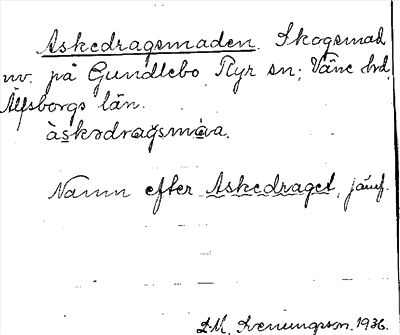 Askedragsmaden. Skogsmad
nv. på Gundlebo, Ryr sn; Väne hd,
Älfsborgs län.
àskədragsmàa.
Namn efter Askedraget, jämf.
D. M. Svenungsson. 1936.